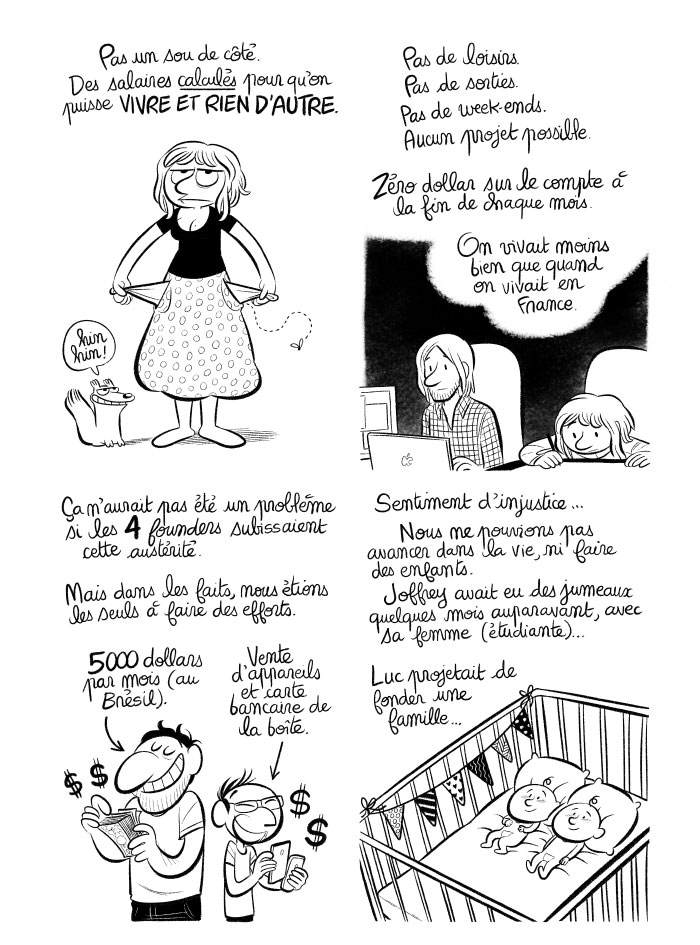 Pas un sou de côté.
Des salaires calculés pour qu'on
puisse VIVRE ET RIEN D'AUTRE.
hin
hin!
Pas de loisirs.
Pas de sorties.
Pas de week-ends.
Aucun projet possible.
Zéro dollar sur le compte à
la fin de chaque mois.
On vivait moins
bien que quand
on vivait en
France.
Ça n'aurait pas été un problème
si les 4 founders subissaient
cette austérité.
Mais dans les faits, nous étions
les seuls à faire des efforts.
5000 dollars
par mois (au
Brésil).
Vente
d'appareils
et carte
bancaire de
la boîte.
$ $
$
$
Sentiment d'injustice...
Nous ne pouvions pas
avancer dans la vie, ni faire
des enfants.
Joffrey avait eu des jumeaux
quelques mois auparavant, avec
sa femme (étudiante)...
Luc projetait de
fonder une
famille...